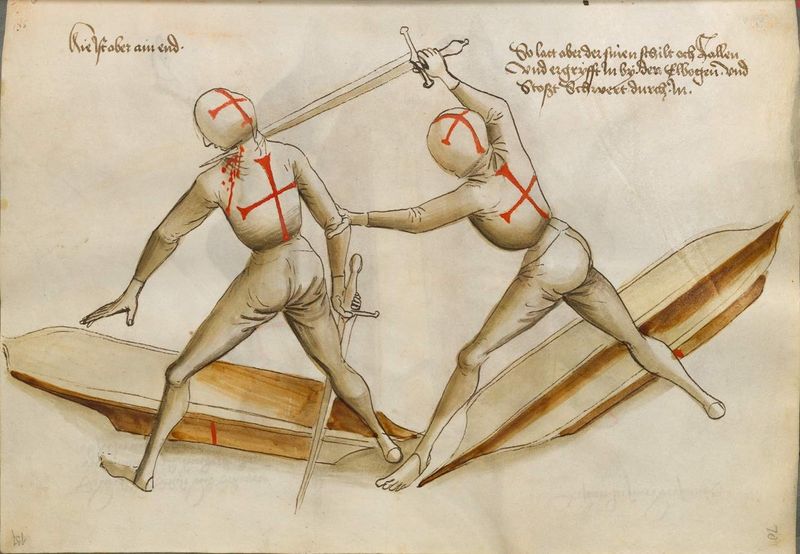 Hie ist aber ain end.
So latt aber der sinen schilt och Fallen
Vnd ergryfft In by der Elbogen. vnd
Stost Schwert durch In.